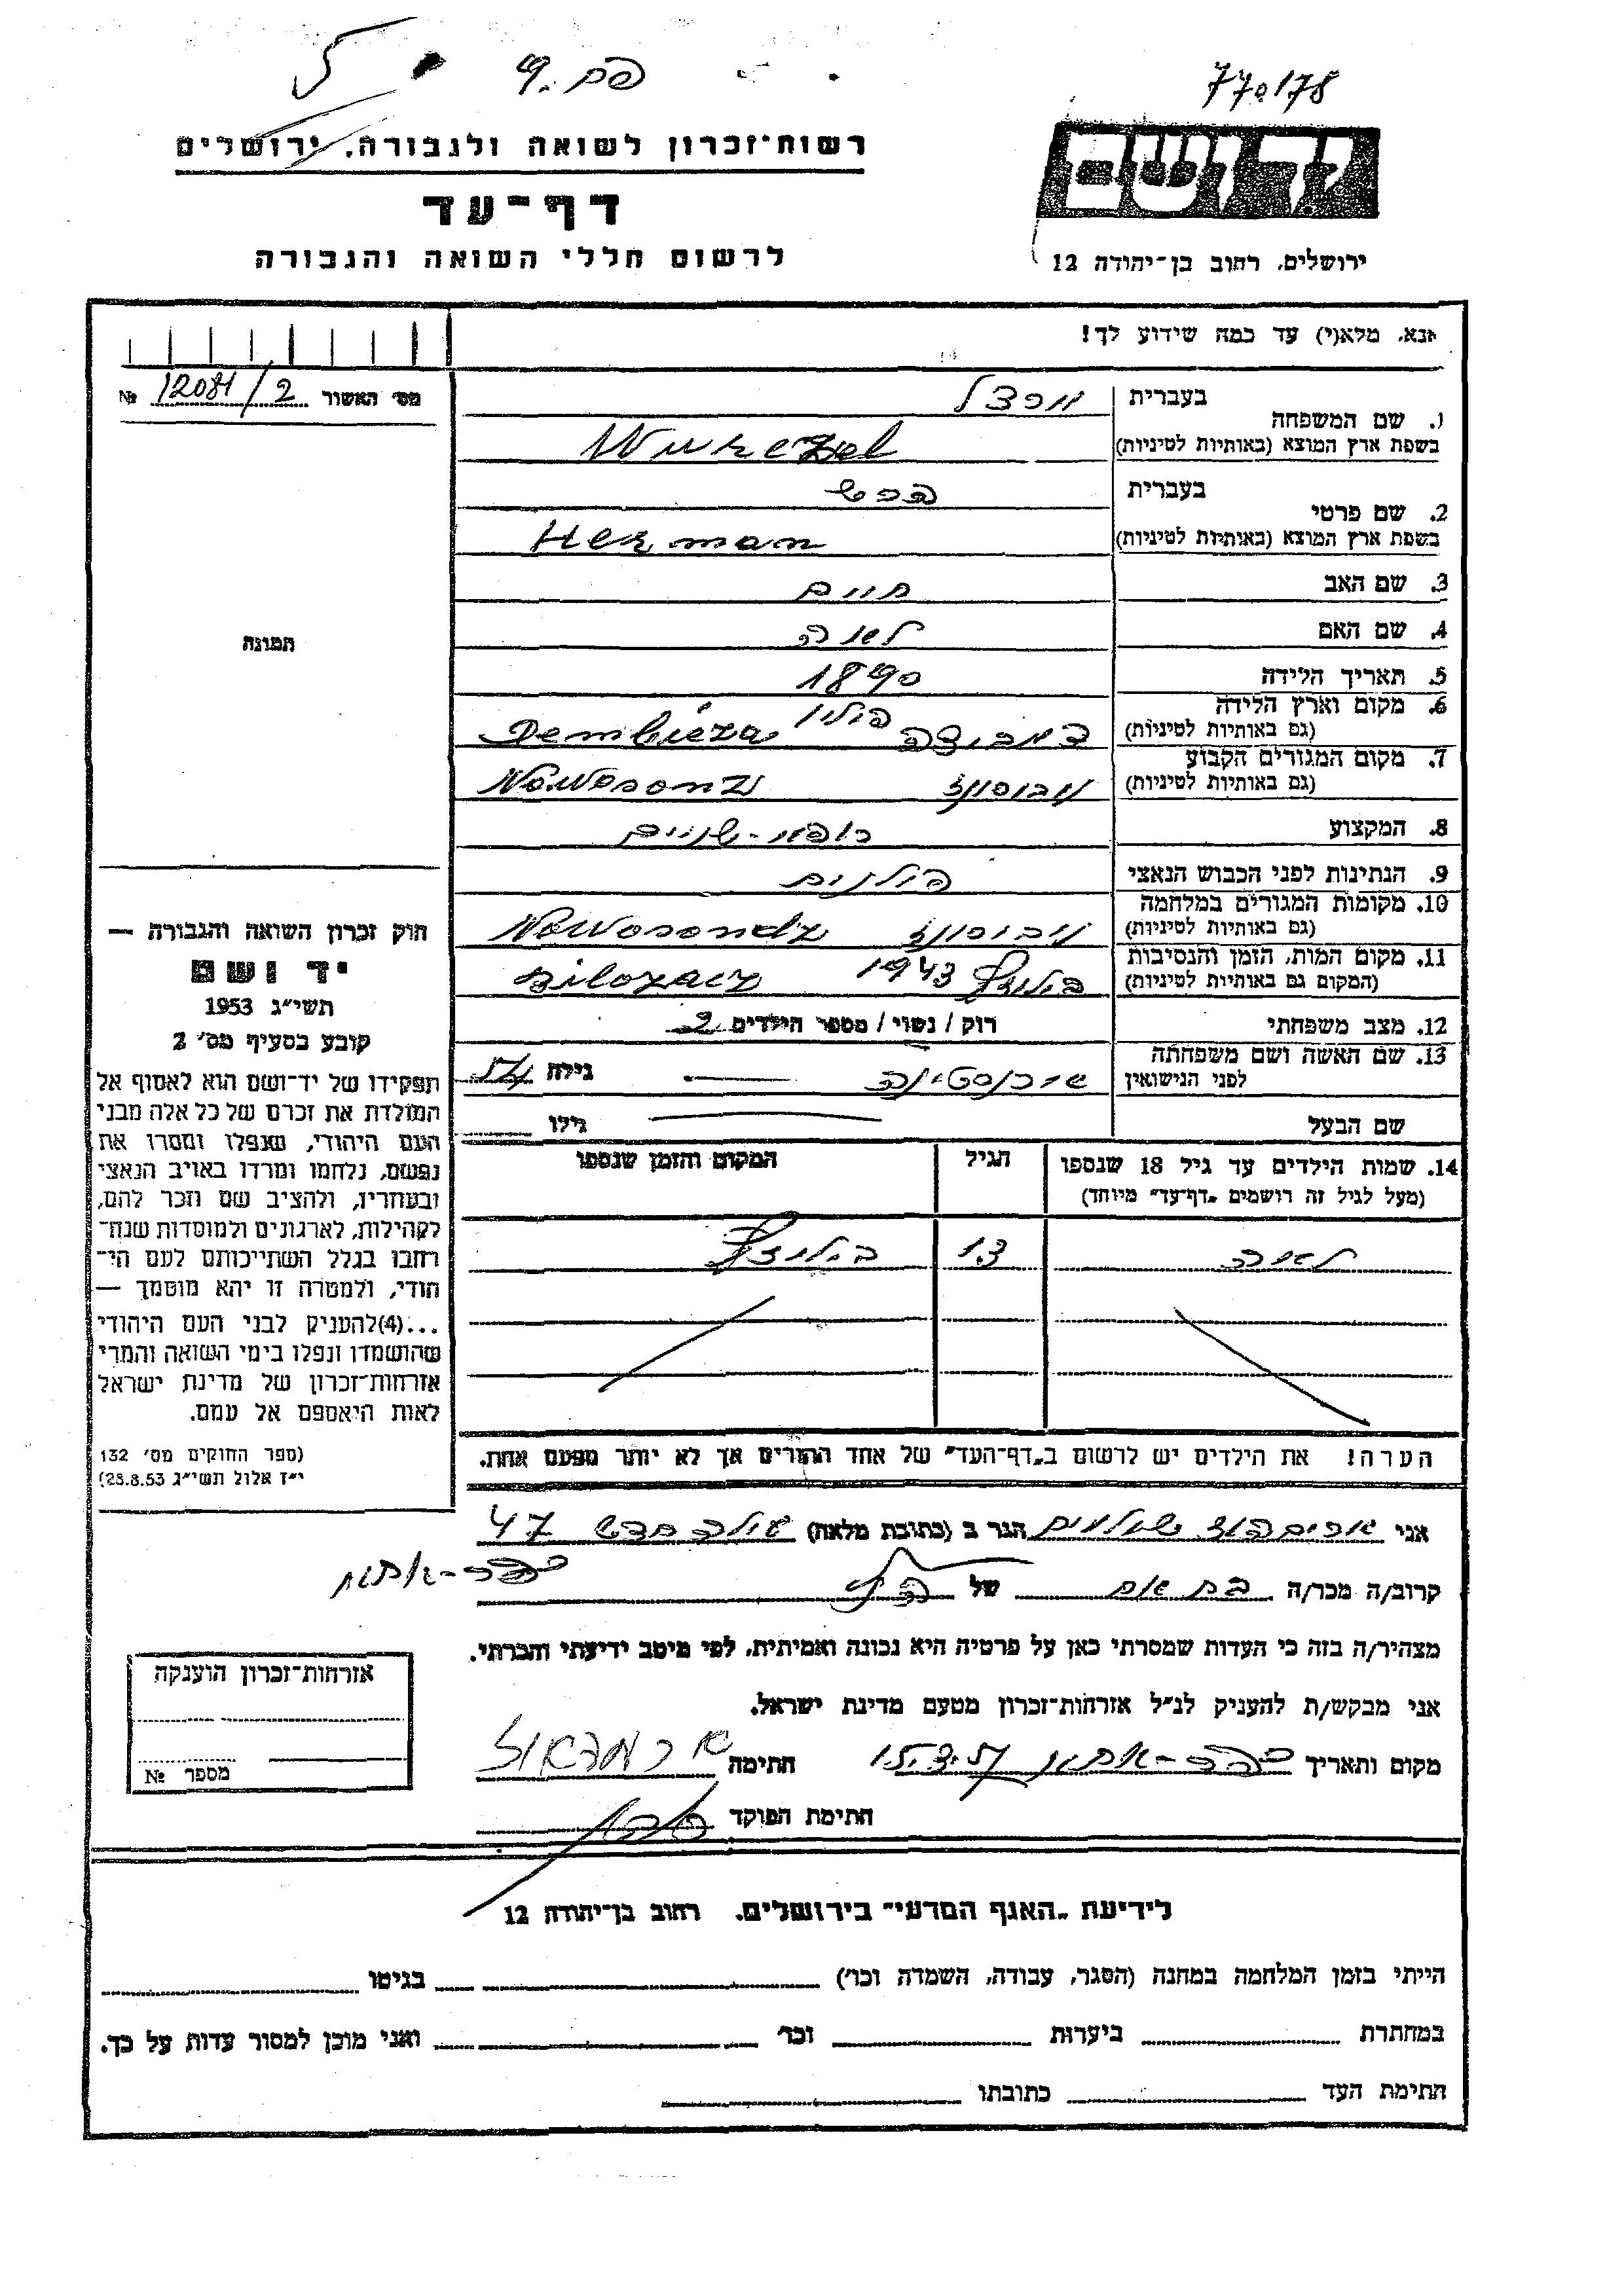 770178
רשות־זכרון לשואה ולגבורה, ירושלים
ידושם
דף־עד
לרשום חללי השואה והגבורה
ירושלים, רחוב בן־יהודה 12
אנא, מלא(י) עד כמה שידוע לך!
מס׳ האשור 12081/2 №
1. שם המשפחה
בעברית
בשפת ארץ המוצא (באותיות לטיניות) Wurezel
2. שם פרטי
בעברית הרש
בשפת ארץ המוצא (באותיות לטיניות) Herman
3. שם האב חיים
4. שם האם לאה
5. תאריך הלידה 1890
6. מקום וארץ הלידה
(גם באותיות לטיניות) דמביצה פולין Dembieza
7. מקום המגורים הקבוע
(גם באותיות לטיניות) נובוסונז Nowosonz
8. המקצוע רופא-שניים
9. הנתינות לפני הכבוש הנאצי פולנית
10. מקומות המגורים במלחמה
(גם באותיות לטיניות) נובוסונז Nowosondz
11. מקום המות, הזמן והנסיבות
(המקום גם באותיות לטיניות) 1943
12. מצב משפחתי רוק / נשוי / מספר הילדים 2
13. שם האשה ושם משפחתה
לפני הנישואין ארנסטינה גילה
שם הבעל גילו
14. שמות הילדים עד גיל 18 שנספו
(מעל לגיל זה רושמים „דף־עד״ מיוחד)
הגיל
המקום והזמן שנספו
13
הערה! את הילדים יש לרשום ב„דף־העד״ של אחד ההורים אך לא יותר מפעם אחת.
תמונה
חוק זכרון השואה והגבורה —
יד ושם
תשי״ג 1953
קובע בסעיף מס׳ 2
תפקידו של יד־ושם הוא לאסוף אל
המולדת את זכרם של כל אלה מבני
העם היהודי, שנפלו ומסרו את
נפשם, נלחמו ומרדו באויב הנאצי
ובעוזריו, ולהציב שם וזכר להם,
לקהילות, לארגונים ולמוסדות שנח־
רחבו בגלל השתייכותם לעם הי־
הודי, ולמטרה זו יהא מוסמך —
...(4)להעניק לבני העם היהודי
שהושמדו ונפלו בימי השואה והמרי
אזרחות־זכרון של מדינת ישראל
לאות היאספם אל עמם.
(ספר החוקים מס׳ 132
י״ז אלול תשי״ג 28.8.53)
אני הגר ב (כתובת מלאה) 47
כפר-אתא
קרוב/ה מכר/ה בת אח של
מצהיר/ה בזה כי העדות שמסרתי כאן על פרטיה היא נכונה ואמיתית, לפי מיטב ידיעתי והכרתי.
אני מבקש/ת להעניק לנ״ל אזרחות־זכרון מטעם מדינת ישראל.
מקום ותאריך כפר-אתא חתימה
חתימת הפוקד
אזרחות־זכרון הוענקה
מספר №
לידיעת „האגף המדעי״ בירושלים, רחוב בן־יהודה 12
הייתי בזמן המלחמה במחנה (הסגר, עבודה, השמדה וכו׳) בגיטו
במחתרת ביערות וכו׳ ואני מוכן למסור עדות על כך.
חתימת העד כתובתו